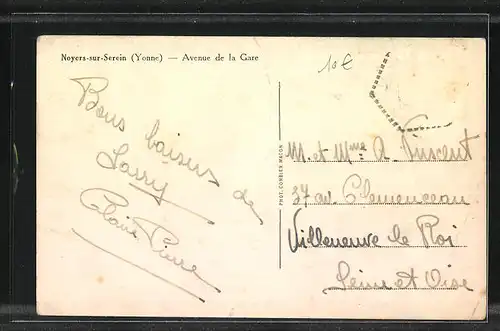 Noyers-sur-Serein (Yonne) — Avenue de la Gare
10€
Bons baisers de
Sarry
Claire Pierre
PHOT. COMBIER MACON
M. et Mme A. Vincent
37 av. Clemenceau
Villeneuve le Roi
Seine et Oise